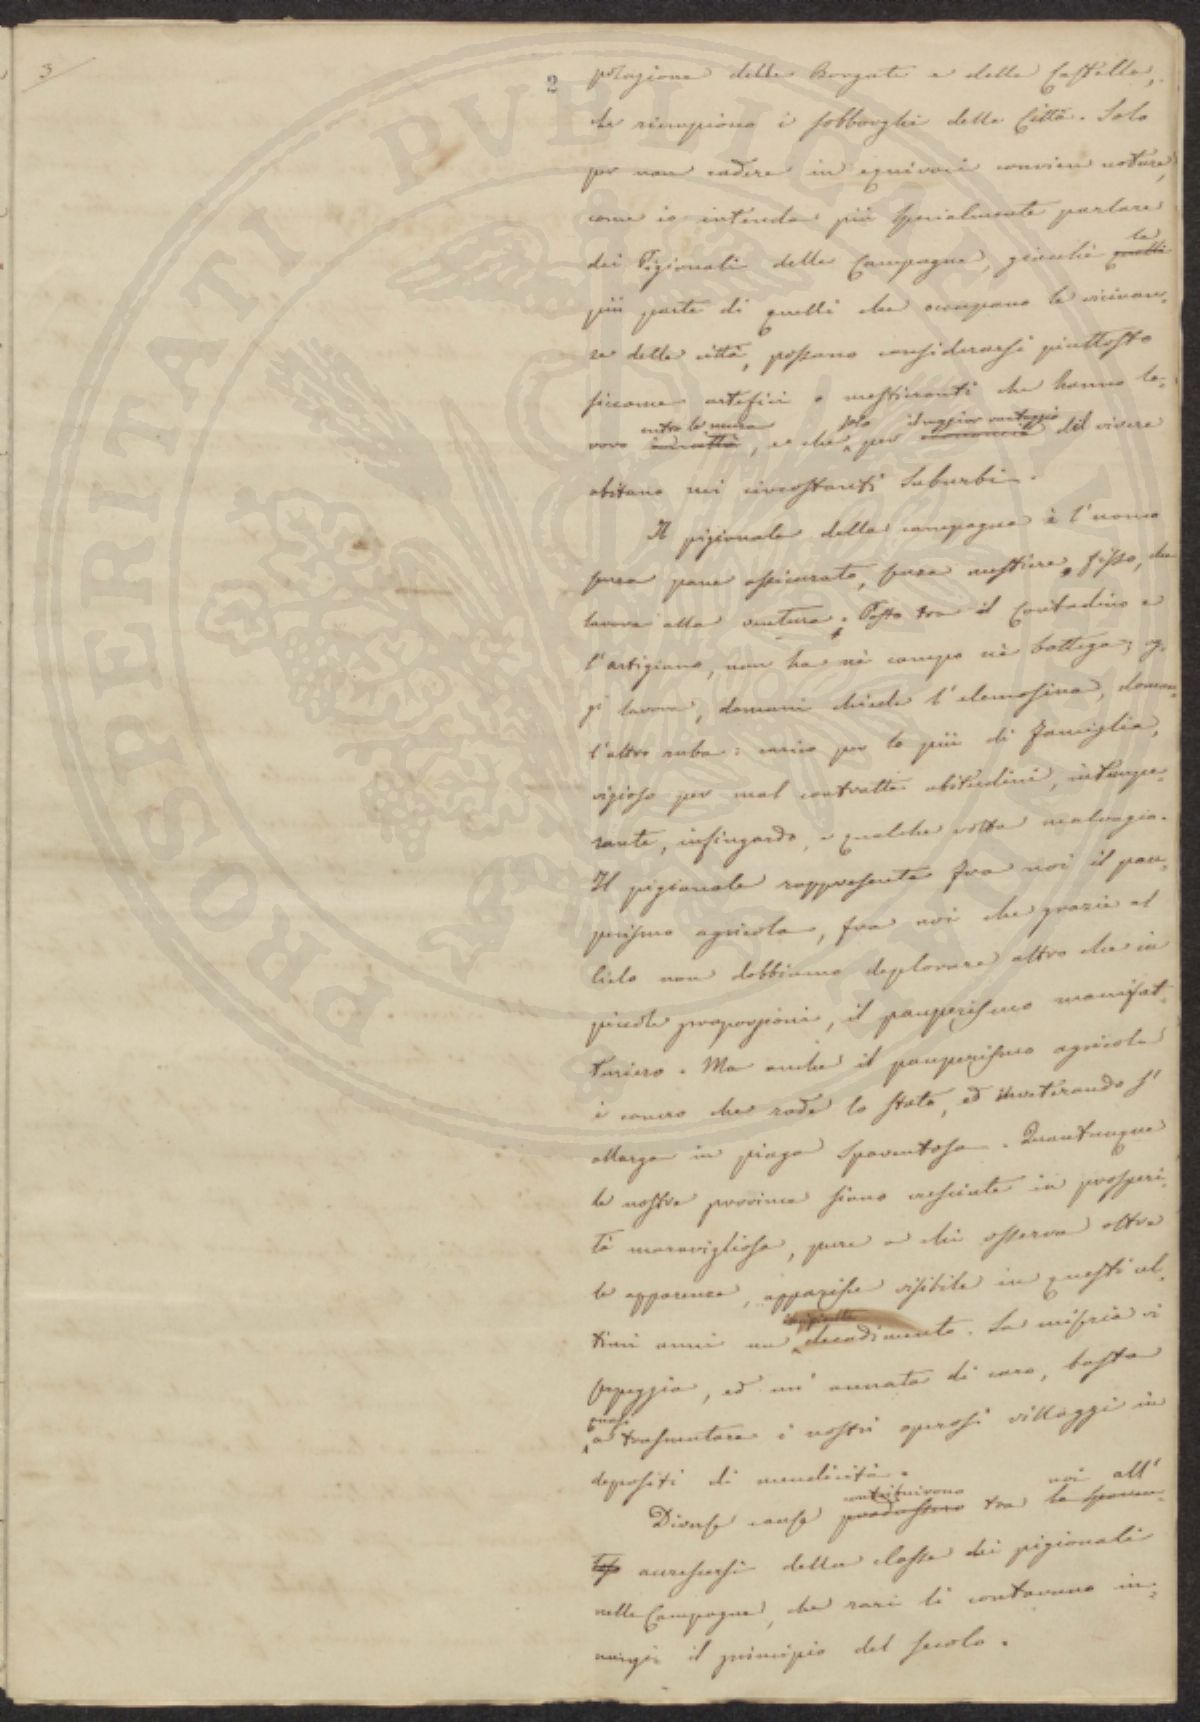 3
2
polazione delle Borgate e delle Castella,
che riempiono i sobborghi delle Città. Solo
per non cadere in equivoci convien notare,
come io intenda più specialmente parlare
dei Pigionali delle Campagne, giacchè quelli la
più parte di quelli che occupano le vicinan-
ze delle città, possano considerarsi piuttosto
siccome artefici o mestieranti che hanno la-
voro in città entro le mura, e che solo per economia il maggior vantaggio del vivere
abitano nei circostanti suburbi.
Il pigionale della campagna è l'uomo
senza pane assicurato, senza mestiere fisso, che
lavora alla ventura. Posto tra il Contadino e
l'artigiano, non ha nè campo nè bottega; og-
gi lavora, domani chiede l'elemosina, doman-
l'altro ruba: carico per lo più di famiglia,
vizioso per mal contratte abitudini, intempe-
rante, infingardo, e qualche volta malvagio.
Il pigionale rappresenta fra noi il pau-
perismo agricola, fra noi che grazie al
Cielo non dobbiamo deplorare altro che in
piccole proporzioni, il pauperismo manifat-
turiero. Ma anche il pauperismo agricola
è cancro che rode lo stato, ed inveterando s'
allarga in piaga spaventosa. Quantunque
le nostre province siano cresciute in prosperi-
tà maravigliosa, pure a chi osserva oltre
le apparenze, apparisce visibile in questi ul-
timi anni un decadimento. La miseria vi
serpeggia, ed un'annata di caro, basta
quasi a trasmutare i nostri operosi villaggi in
depositi di mendicità.
Diverse cause produssero contribuirono tra noi all'
accrescersi della classe dei pigionali
nelle Campagne, che rari si contavano in-
nanzi il principio del secolo.
PROSPERITATI PVBLICAE